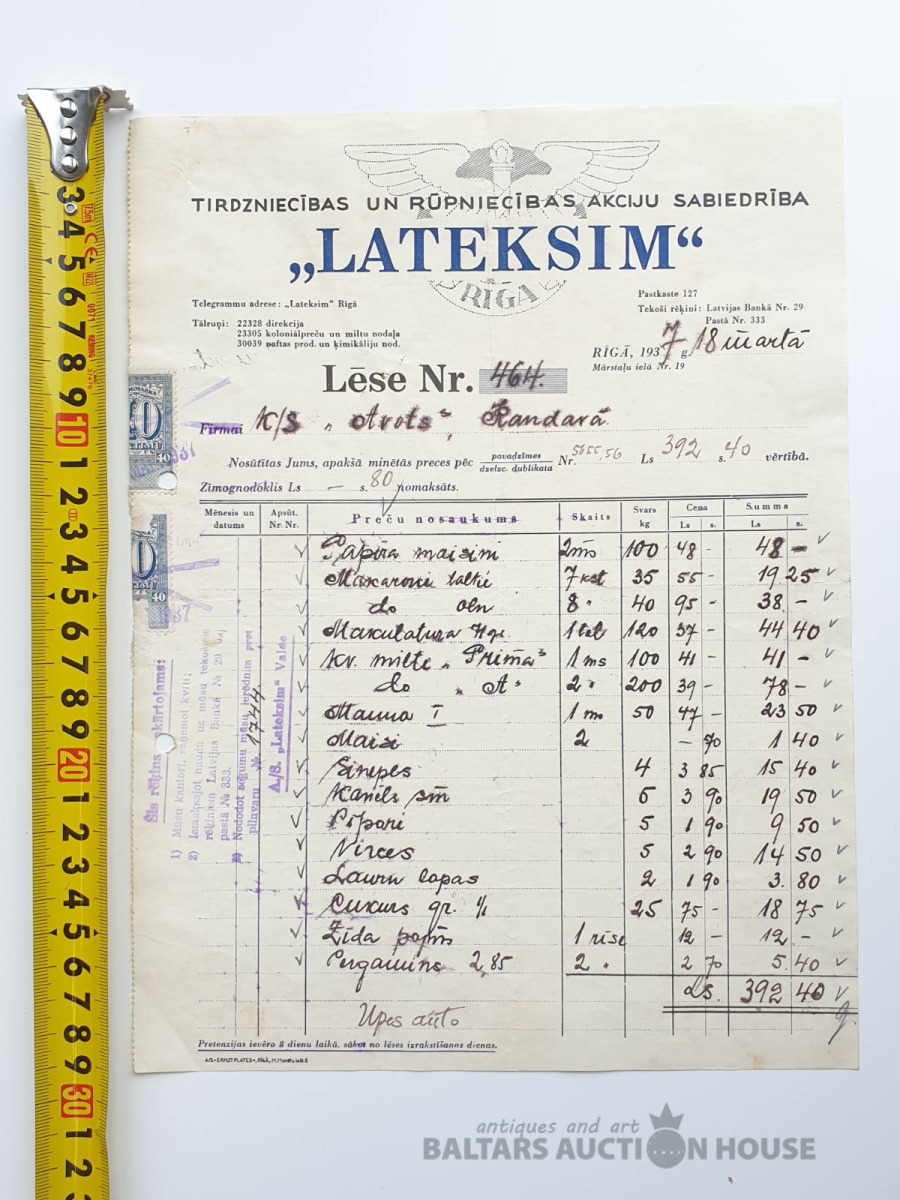 TIRDZNIECĪBAS UN RŪPNIECĪBAS AKCIJU SABIEDRĪBA
„LATEKSIM“
RĪGĀ
Telegrammu adrese: „Lateksim“ Rīgā
Tālruņi: 22328 direkcija
23305 koloniālpreču un miltu nodaļa
30039 naftas prod. un ķimikāliju nod.
Pastkaste 127
Tekoši rēķini: Latvijas Bankā Nr. 29
Pastā Nr. 333
RĪGĀ, 1937 g. 18 martā
Mārstaļu ielā Nr. 19
Lēse Nr. 464.
Firmai K/S „Avots“, Kandavā
Nosūtītas Jums, apakšā minētās preces pēc pavadzīmes Nr. 5655,56 Ls 392 s. 40 vērtībā.
dzelzc. dublikata
Zīmognodoklis Ls — s. 80 nomaksāts.
Mēnesis un datums Apsūt. Nr. Nr. Preču nosaukums Skaits Svars kg Cena Ls s. Summa Ls s.
Papīra maisiņi 2 ms 100 48 - 48 -
Makaroni 7 kst 35 55 - 19 25
do 8 " 40 95 - 38 -
Makulatura 120 37 - 44 40
Kv. milti „Prima“ 1 ms 100 41 - 41 -
do „A“ 2 " 200 39 - 78 -
Manna I 1 ms 50 47 - 23 50
Maisi 2 - 70 1 40
Sinepes 4 3 85 15 40
Kanēls 5 3 90 19 50
Pipari 5 1 90 9 50
Virces 5 2 90 14 50
Lauru lapas 2 1 90 3. 80
Cukurs gr. 25 75 - 18 75
Zīda 1 rīse 12 - 12 -
Pergamins 2,85 2 " 2 70 5. 40
Ls. 392 40
Upes auto
Pretenzijas ievēro 8 dienu laikā, sākot no lēses izrakstīšanos dienas.
A/S «ERNST PLATES», RĪGĀ
Šis rēķins kārtojams:
1) Mūsu kantorī, saņemot kvīti;
2) Iemaksājot naudu uz mūsu tekošiem
rēķiniem Latvijas Bankā № 29 vai
pastā № 333.
Nododot segumu mūsu ierēdnim pret
pilnvaru № 1744.
A./S. „Lateksim“ Valde
40
40
antiques and art
BALTARS AUCTION HOUSE